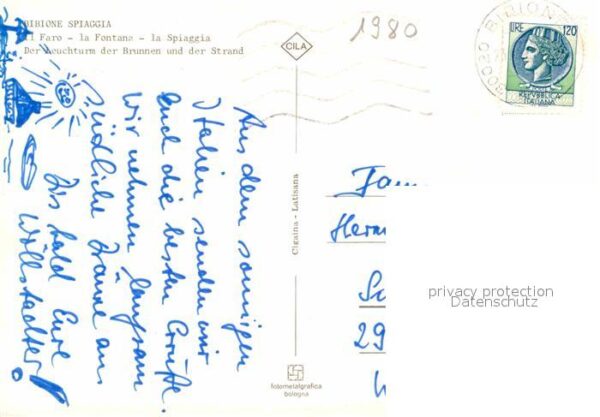 BIBIONE SPIAGGIA
Il Faro - la Fontana - la Spiaggia
Der Leuchturm der Brunnen und der Strand
1980
CILA
30020 BIBIONE
LIRE 120
REPUBBLICA
ITALIANA
Aus dem sonnigen
Italien senden wir
Euch die besten Grüße.
Wir nehmen langsam
südliche Bräune an
Bis bald Eure
Wöllstadter!
Cigaina - Latisana
Fam
Herm
29
privacy protection
Datenschutz
fotometalgrafica
bologna